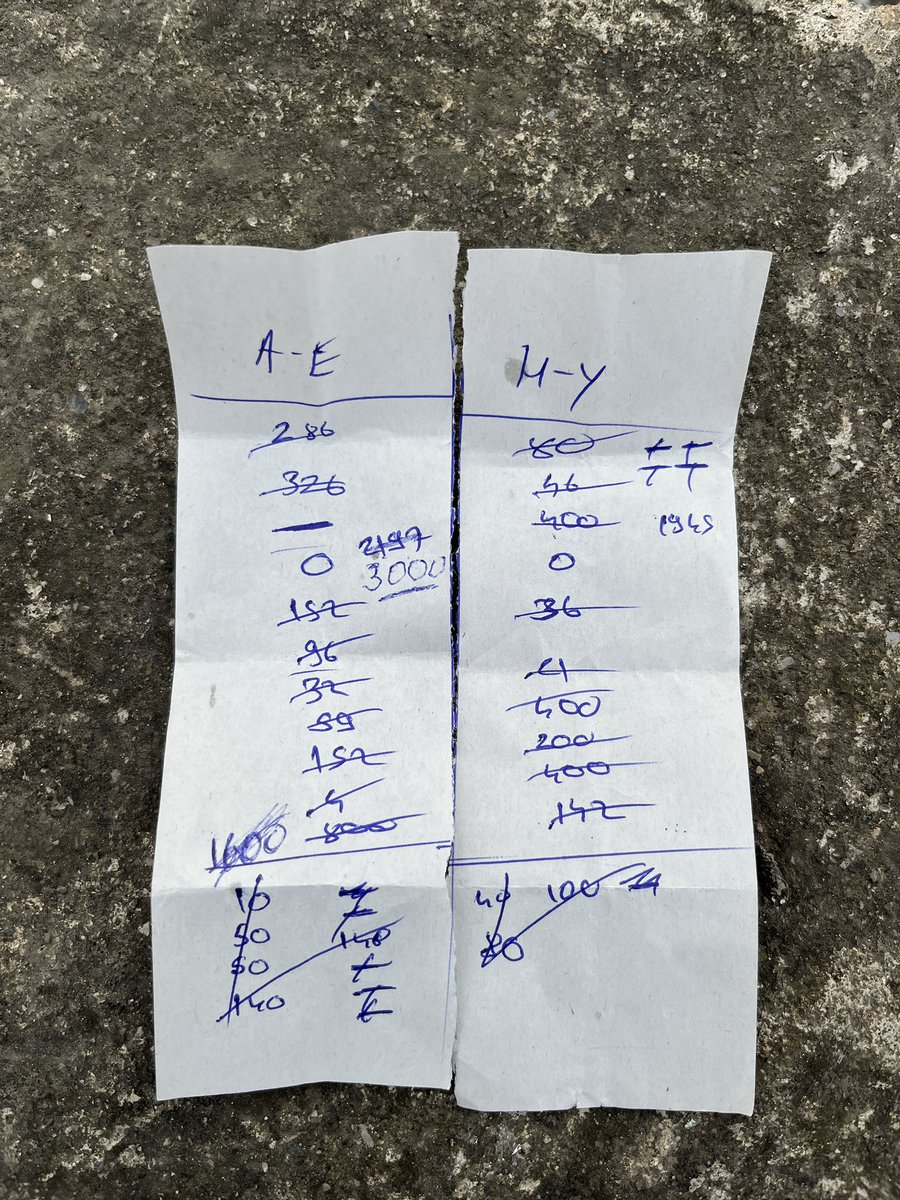 A-E
286
326
—
0
2197
3000
152
96
32
99
152
4
1600
10
50
140
50
140
M-Y
46
400
1945
0
36
4
400
200
400
142
40 100
80